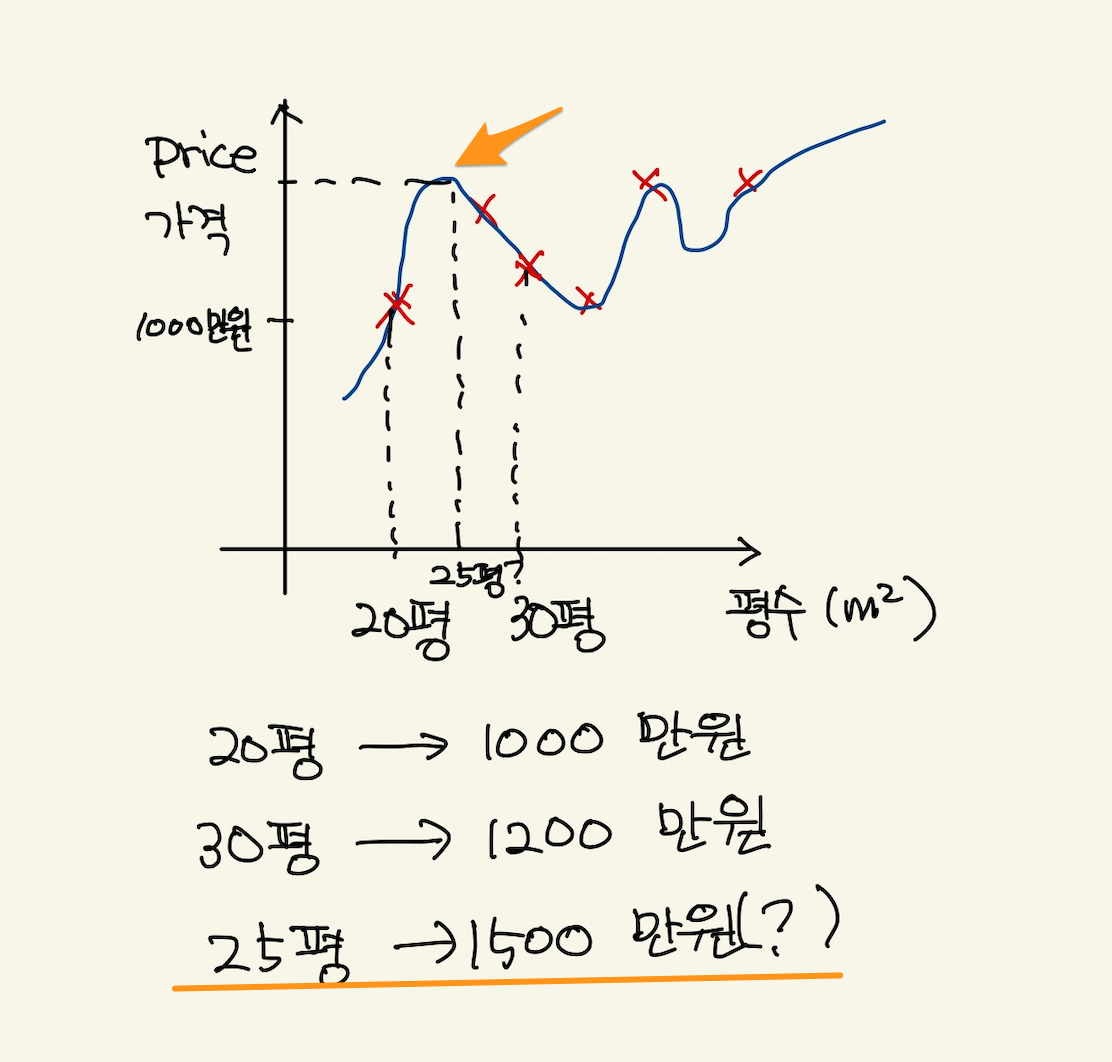 Price
가격
1000만원
25평?
20평
30평
평수 (m²)
20평 → 1000 만원
30평 → 1200 만원
25평 → 1500 만원(?)